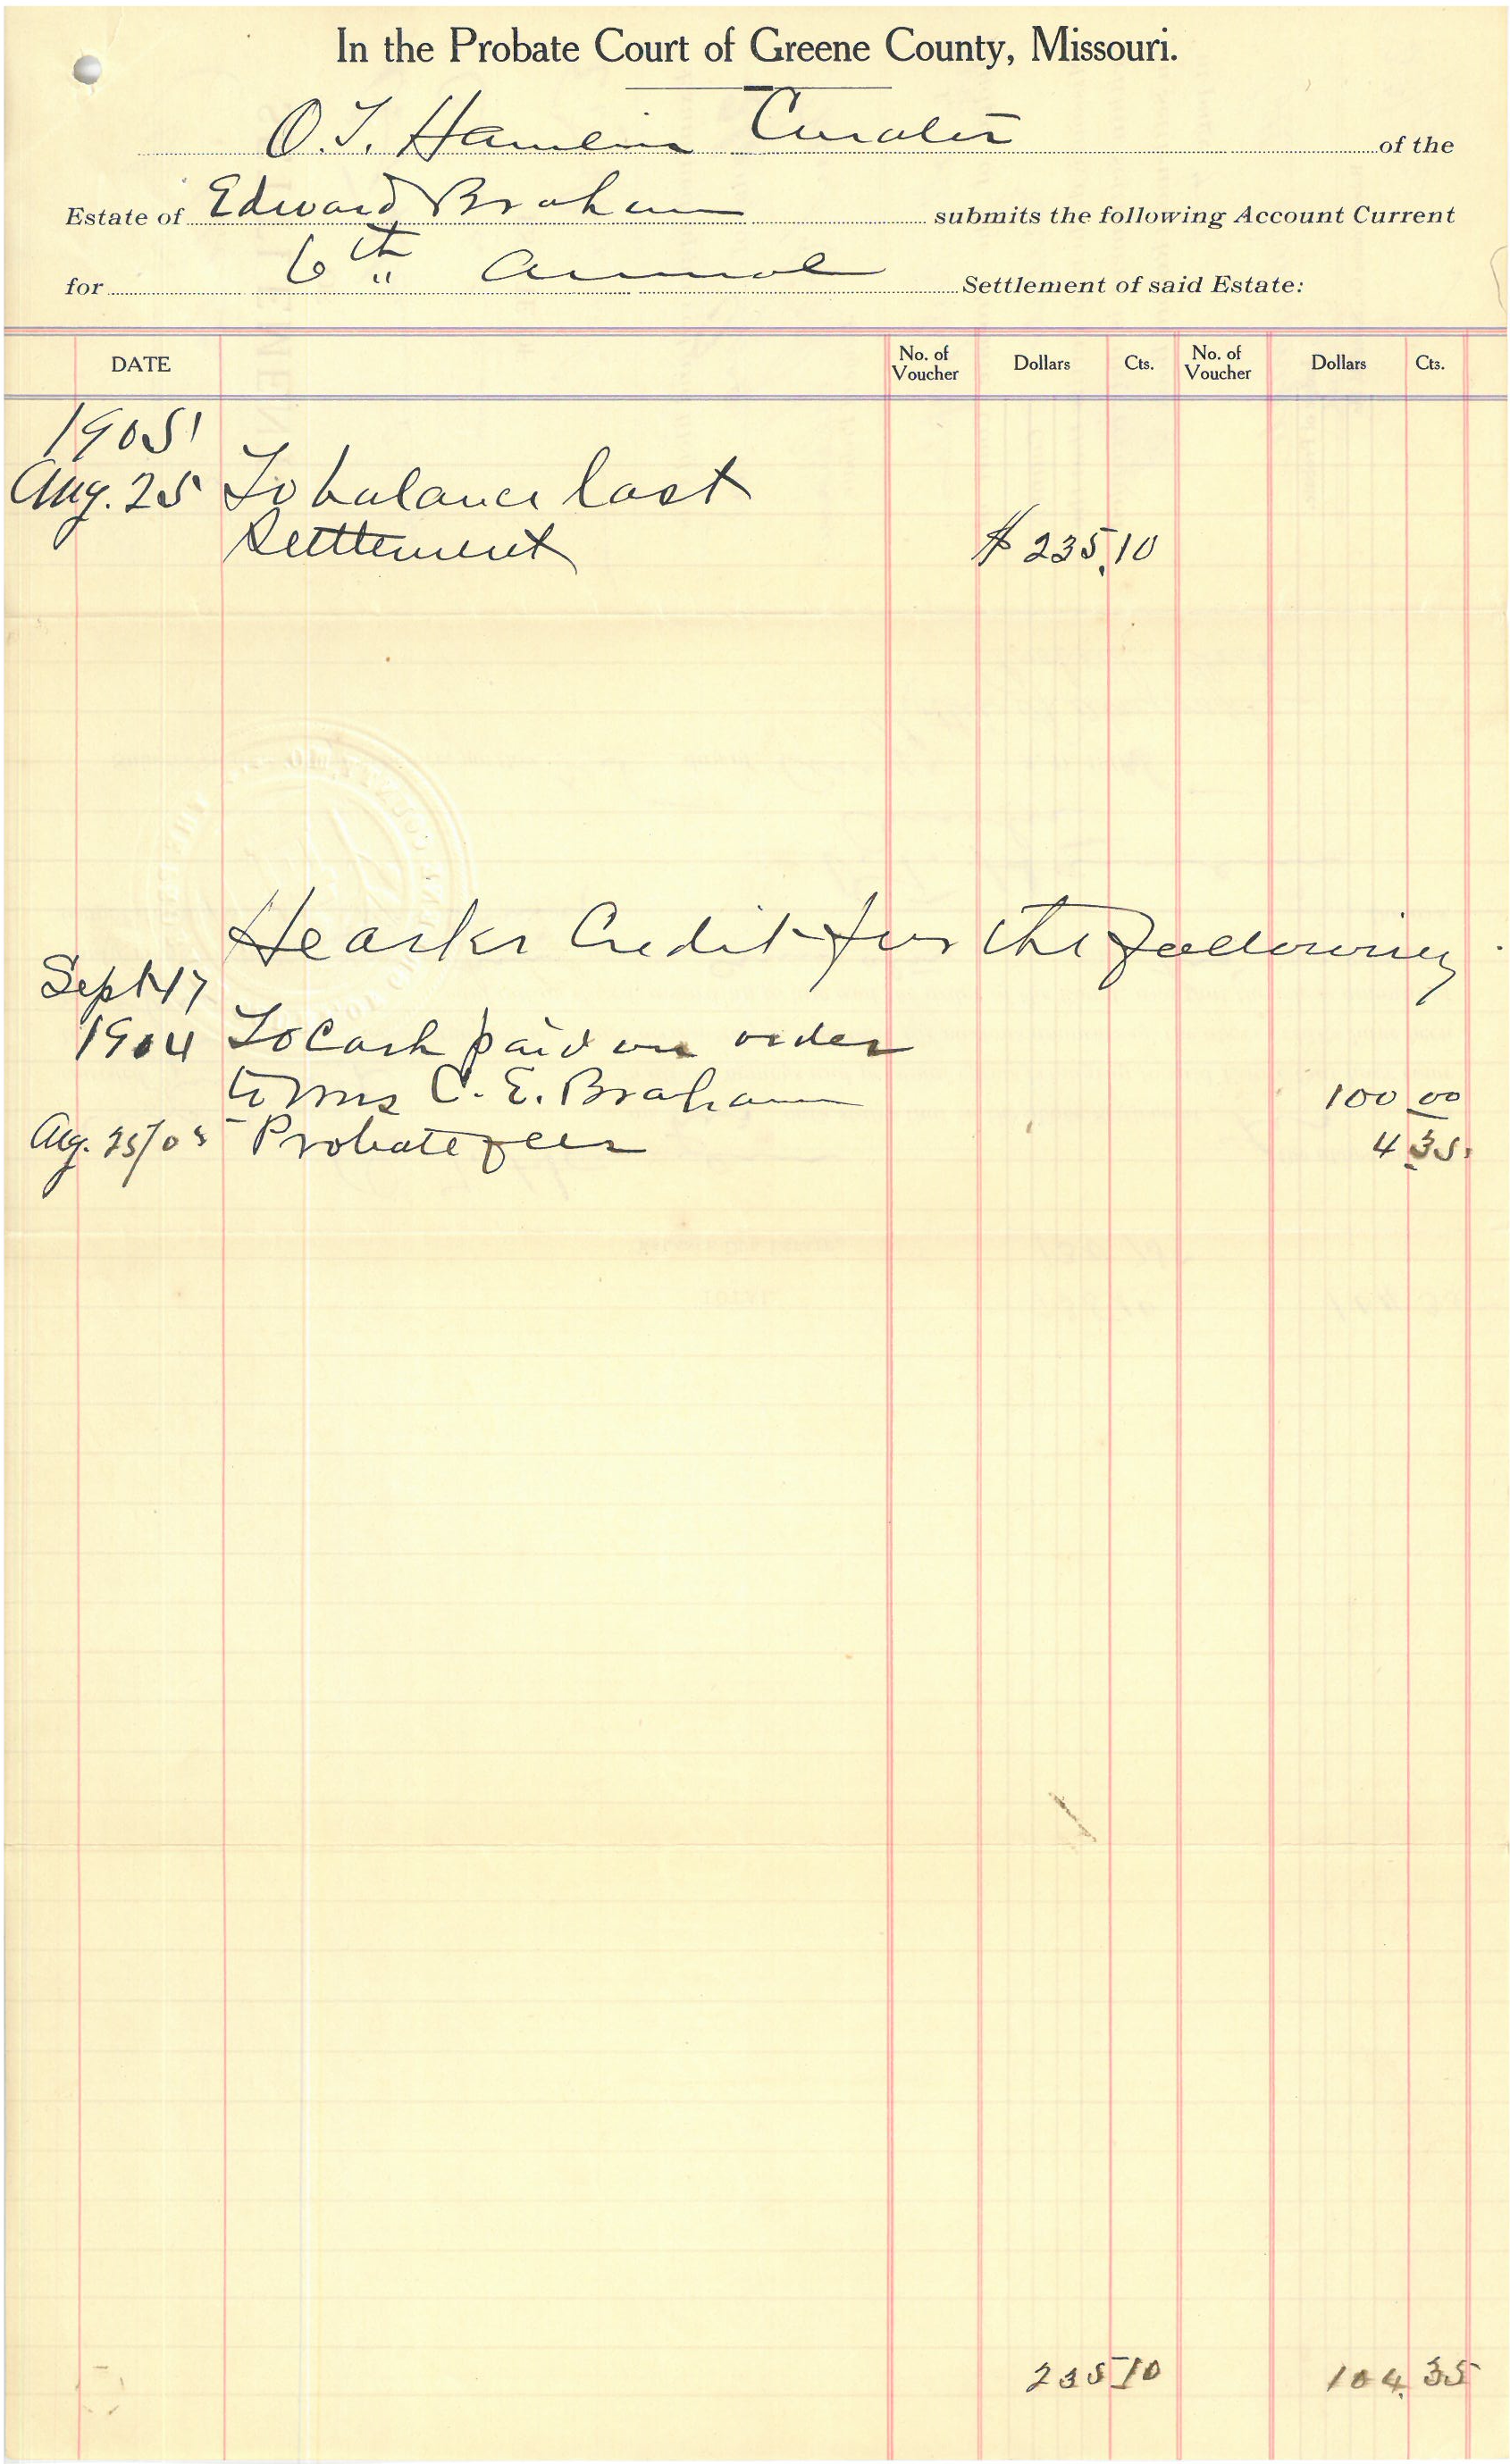 In the Probate Court of Greene County, Missouri.
O.T. Hamlin Curator of the
Estate of Edward Braham submits the following Account Current
for 6th Annual Settlement of said Estate:
DATE No. of Voucher Dollars Cts. No. of Voucher Dollars Cts.
1905
Aug. 25 To balance last
Settlement $ 235.10
He asks Credit for the following
Sept 17
1904 To Cash paid on order
to Mrs C. E. Braham 100 00
Aug. 25/05 Probate fees 4.35
235 10 104.35